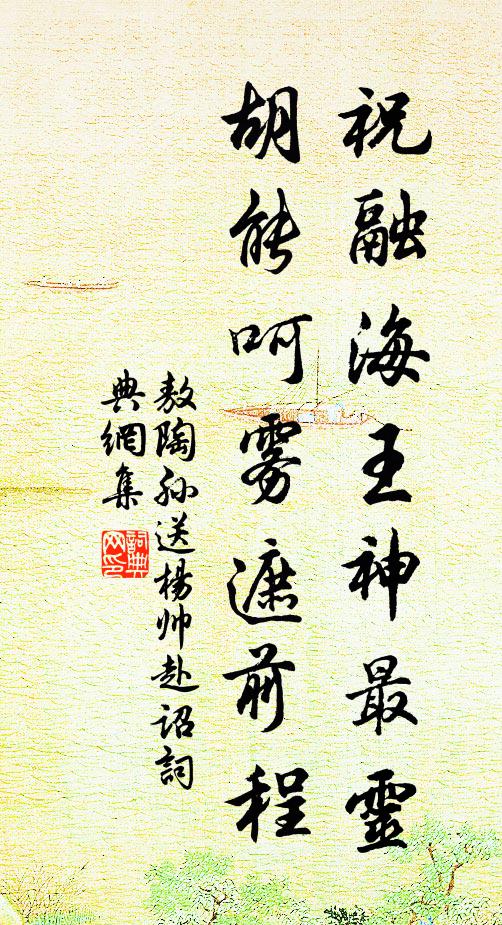 祝融海王神最靈
胡能呵雾遮前程
敖陶孙送楊帅赴诏詞
典網集
詞典网印